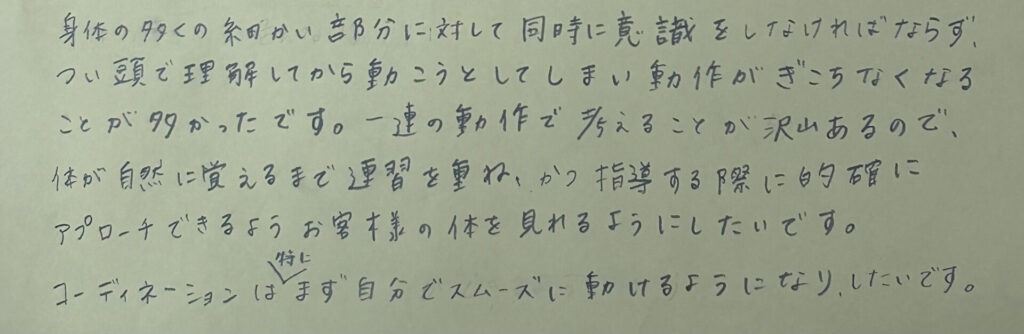 身体の多くの細かい部分に対して同時に意識をしなければならず、
つい頭で理解してから動こうとしてしまい動作がぎこちなくなる
ことが多かったです。一連の動作で考えることが沢山あるので、
体が自然に覚えるまで練習を重ね、かつ指導する際に的確に
アプローチできるようお客様の体を見れるようにしたいです。
コーディネーションは特にまず自分でスムーズに動けるようになり、したいです。